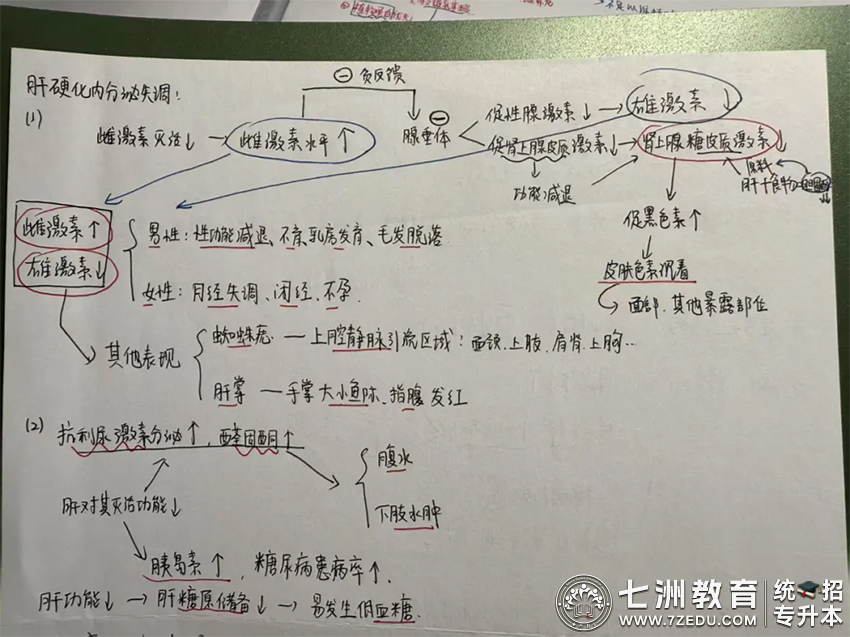 肝硬化内分泌失调:
(1)
⊖ 负反馈
雌激素灭活↓ → 雌激素水平↑
腺垂体 ⊖
促性腺激素↓ → 雄激素↓
促肾上腺皮质激素↓ → 肾上腺糖皮质激素↓
功能减退
原料
肝+食物
促黑色素↑
皮肤色素沉着
面部、其他暴露部位
雌激素↑
雄激素↓
男性:性功能减退、不育、乳房发育、毛发脱落
女性:月经失调、闭经、不孕.
其他表现
蜘蛛痣 — 上腔静脉引流区域:面颈、上肢、肩背、上胸…
肝掌 — 手掌大小鱼际、指腹发红
(2)
抗利尿激素分泌↑,醛固酮↑
腹水
下肢水肿
肝对其灭活功能↓
胰岛素↑,糖尿病患病率↑.
肝功能↓ → 肝糖原储备↓ → 易发生低血糖.
七洲教育
WWW.7ZEDU.COM
统招
专升本